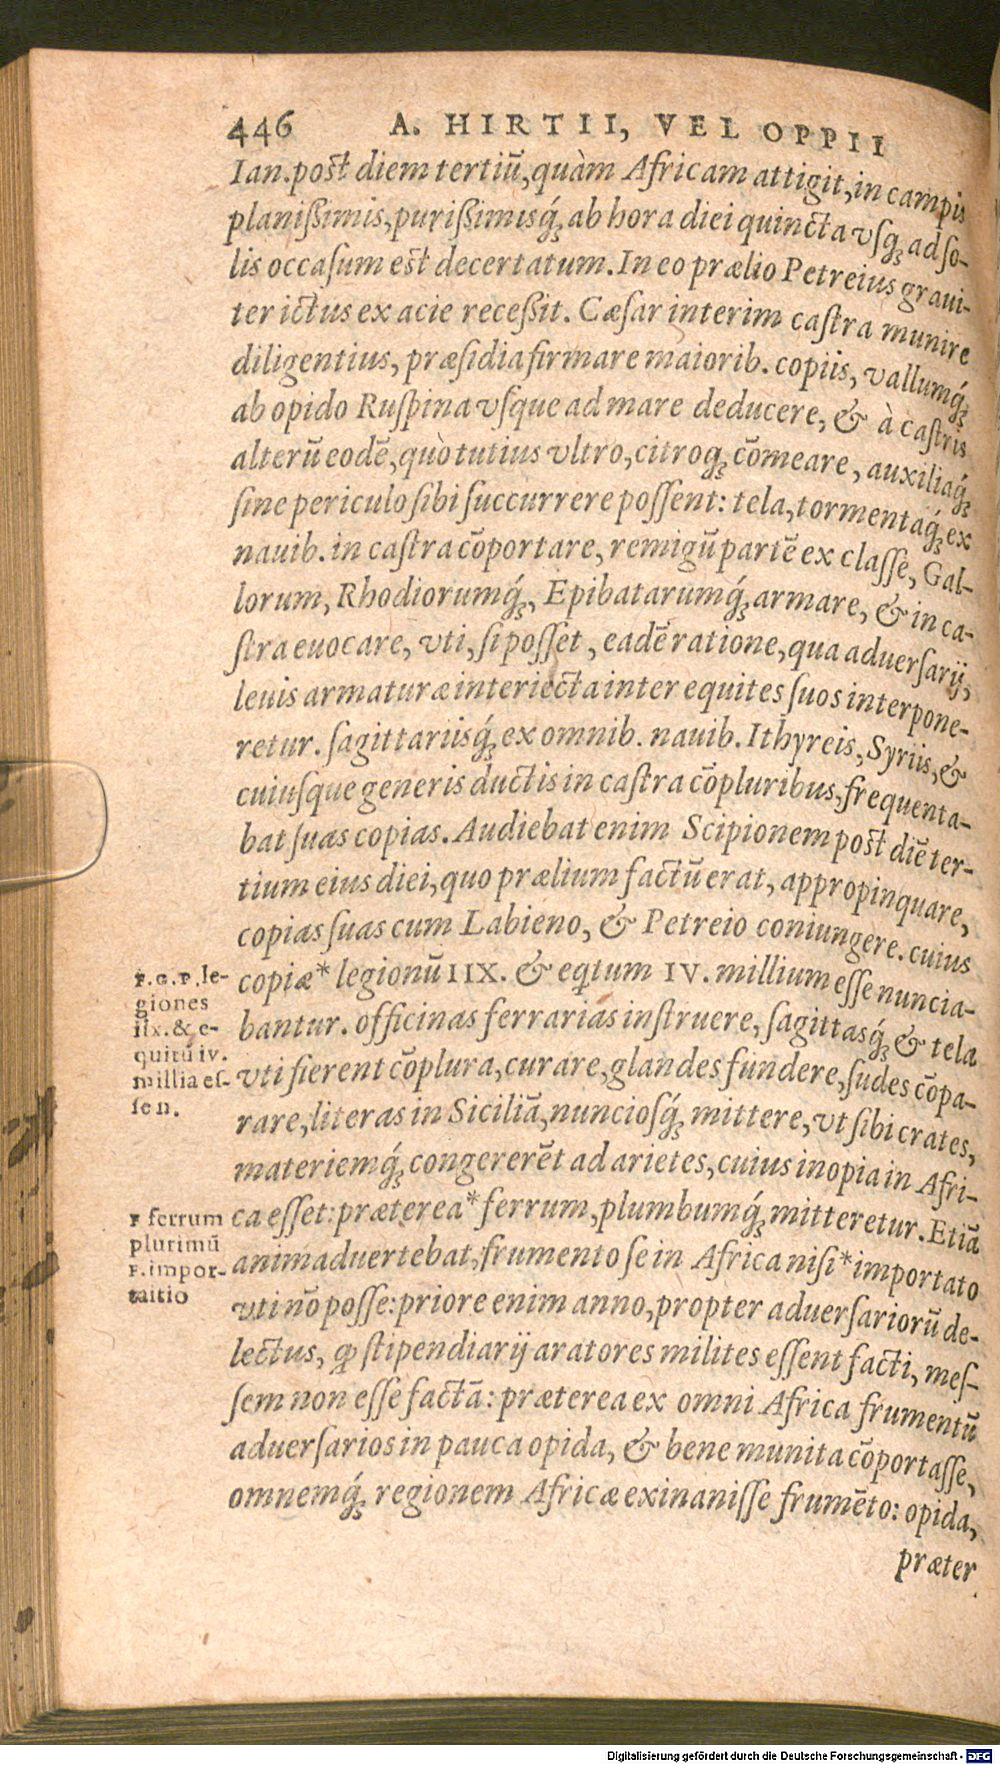 446 A. HIRTII, VEL OPPII
Ian. post diem tertiũ, quàm Africam attigit, in campis
planißimis, purißimisq́; ab hora diei quincta vſq; ad ſo-
lis occaſum est decertatum. In eo prælio Petreius graui-
ter ictus ex acie receßit. Cæſar interim caſtra munire
diligentius, præſidia firmare maiorib. copiis, vallumq́;
ab opido Ruſpina vſque ad mare deducere, & à caſtris
alterũ eodẽ, quò tutius vltro, citroq; cõmeare, auxiliaq́;
ſine periculo ſibi ſuccurrere poſſent: tela, tormentaq́; ex
nauib. in caſtra cõportare, remigũ partẽ ex claſſe, Gal-
lorum, Rhodiorumq́;, Epibatarumq́; armare, & in ca-
ſtra euocare, vti, ſi poſſet, eadẽ ratione, qua aduerſarij,
leuis armaturæ interiecta inter equites ſuos interpone-
retur. ſagittariisq́; ex omnib. nauib. Ithyreis, Syriis, &
cuiuſque generis ductis in caſtra cõpluribus, frequenta-
bat ſuas copias. Audiebat enim Scipionem post diẽ ter-
tium eius diei, quo prælium factũ erat, appropinquare,
copias ſuas cum Labieno, & Petreio coniungere. cuius
copiæ* legionũ IIX. & eqtum IV. millium eſſe nuncia-
bantur. officinas ferrarias inſtruere, ſagittasq́; & tela
vti fierent cõplura, curare, glandes fundere, ſudes cõpa-
rare, literas in Siciliã, nuncioſq́; mittere, vt ſibi crates,
materiemq́; congererẽt ad arietes, cuius inopia in Afri-
ca eſſet: præterea* ferrum, plumbumq́; mitteretur. Etiã
animaduertebat, frumento ſe in Africa niſi* importato
vti nõ poſſe: priore enim anno, propter aduerſariorũ de-
lectus, ꝙ ſtipendiarij aratores milites eſſent facti, meſ-
ſem non eſſe factã: præterea ex omni Africa frumentũ
aduerſarios in pauca opida, & bene munita cõportaſſe,
omnemq́; regionem Africæ exinaniſſe frumẽto: opida,
præter
F. G. P. le-
giones
iix. & e-
quitũ iv.
millia eſ-
ſe n.
F ferrum
plurimũ
F. impor-
taitio
Digitalisierung gefördert durch die Deutsche Forschungsgemeinschaft - DFG